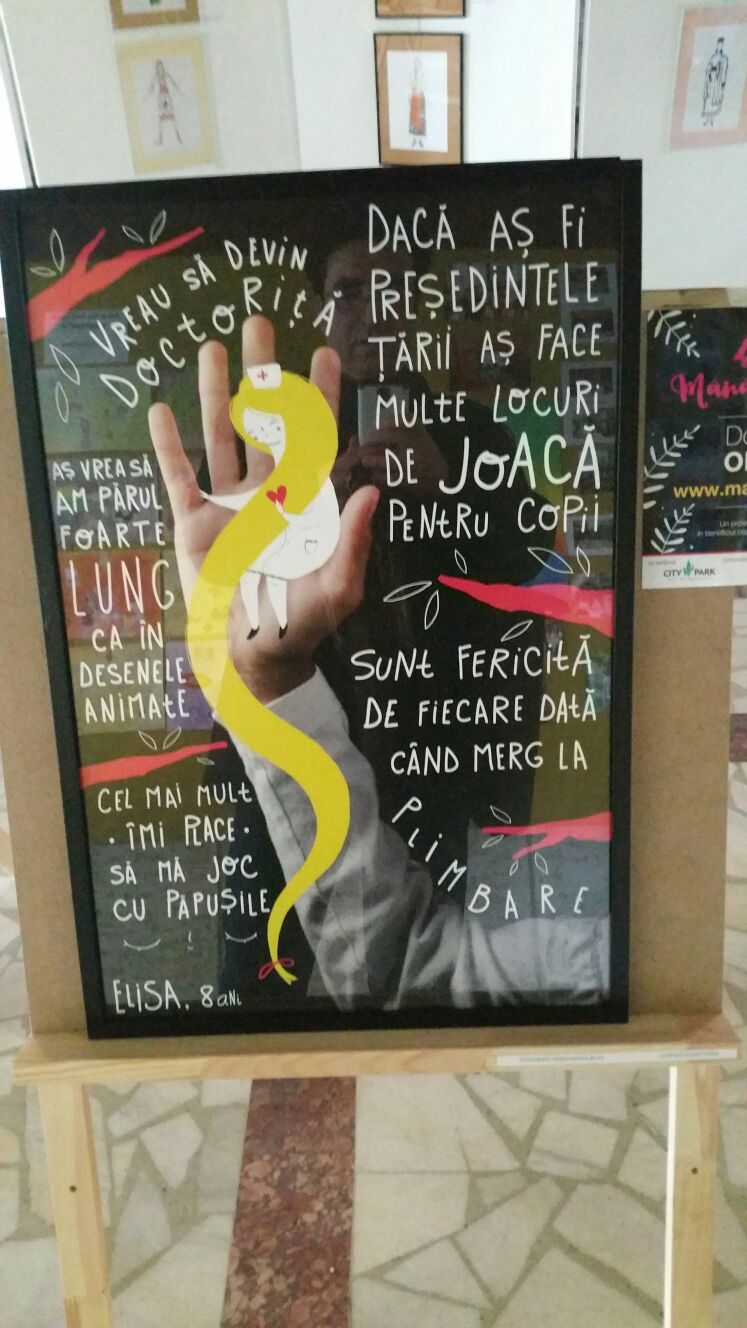 VREAU SĂ DEVIN
DOCTORIȚĂ
AȘ VREA SĂ
AM PĂRUL
FOARTE
LUNG
CA ÎN
DESENELE
ANIMATE
CEL MAI MULT
• ÎMI PLACE •
SĂ MĂ JOC
CU PĂPUȘILE
ELISA, 8 ANI
DACĂ AȘ FI
PREȘEDINTELE
ȚĂRII AȘ FACE
MULTE LOCURI
DE JOACĂ
PENTRU COPII
SUNT FERICITĂ
DE FIECARE DATĂ
CÂND MERG LA
PLIMBARE
www.ma
CITY PARK